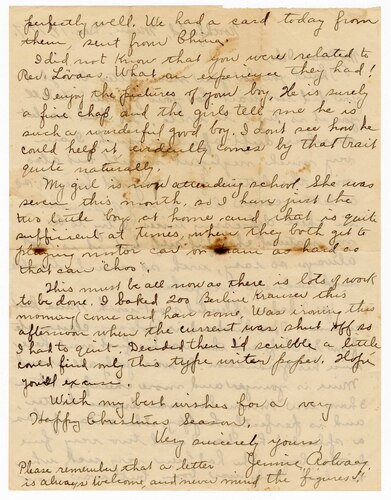 perfectly well. We had a card today from
them, sent from China.
I did not know that you were related to
Rev. Lovaas. What an experience they had!
I enjoy the pictures of your boy. He is surely
a fine chap and the girls tell me he is
such a wonderful good boy. I don't see how he
could help it evidently comes by that trait
quite naturally.
My girl is now attending school. She was
seven this month, so I have just the
two little boys at home and that is quite
sufficient at times, when they both get to
playing motor car or train as hard as
that can "choo".
This must be all now as there is lots of work
to be done. I baked 200 Berline Kranser this
morning (come and have some. Was ironing this
afternoon when the current was shut off so
I had to quit. Decided then I'd scribble a little
could find only this type writer paper. Hope
you'll excuse.
With my best wishes for a very
Happy Christmas Season,
Very sincerely yours
Jennie Rolvaag
Please remember that a letter
is always welcome, and never mind the "figures"!!